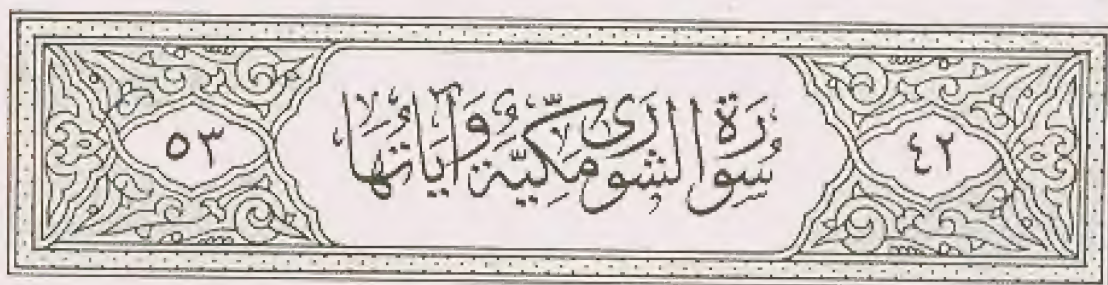 ٤٢ سُورَةُ الشُّورَىٰ مَكِّيَّةٌ وَآيَاتُهَا ٥٣